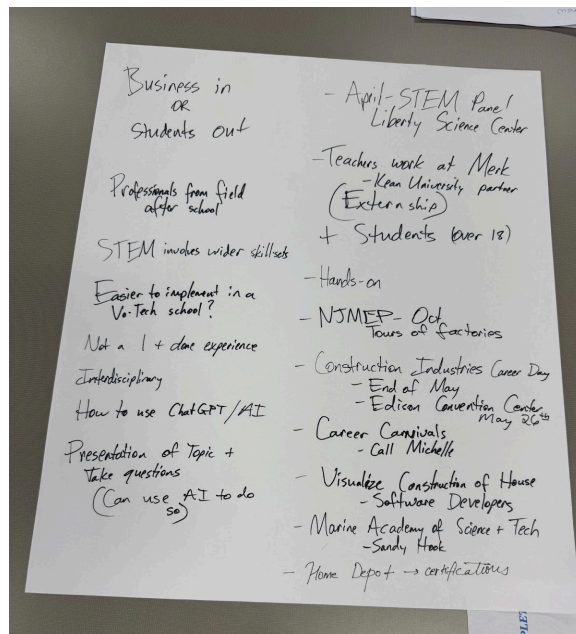 Business in
OR
Students Out
Professionals from field
after school
STEM involves wider skillsets
Easier to implement in a
Vo-Tech school?
Not a 1 + done experience
Interdisciplinary
How to use ChatGPT/AI
Presentation of Topic +
take questions
(Can use AI to do
so)
- April - STEM Panel
Liberty Science Center
- Teachers work at Merk
- Kean University partner
(Externship)
+ Students (over 18)
- Hands-on
- NJMEP - Oct
Tours of factories
- Construction Industries Career Day
- End of May
- Edison Convention Center
May 26th
- Career Carnivals
- Call Michelle
- Visualize Construction of House
- Software Developers
- Marine Academy of Science + Tech
- Sandy Hook
- Home Depot → certifications